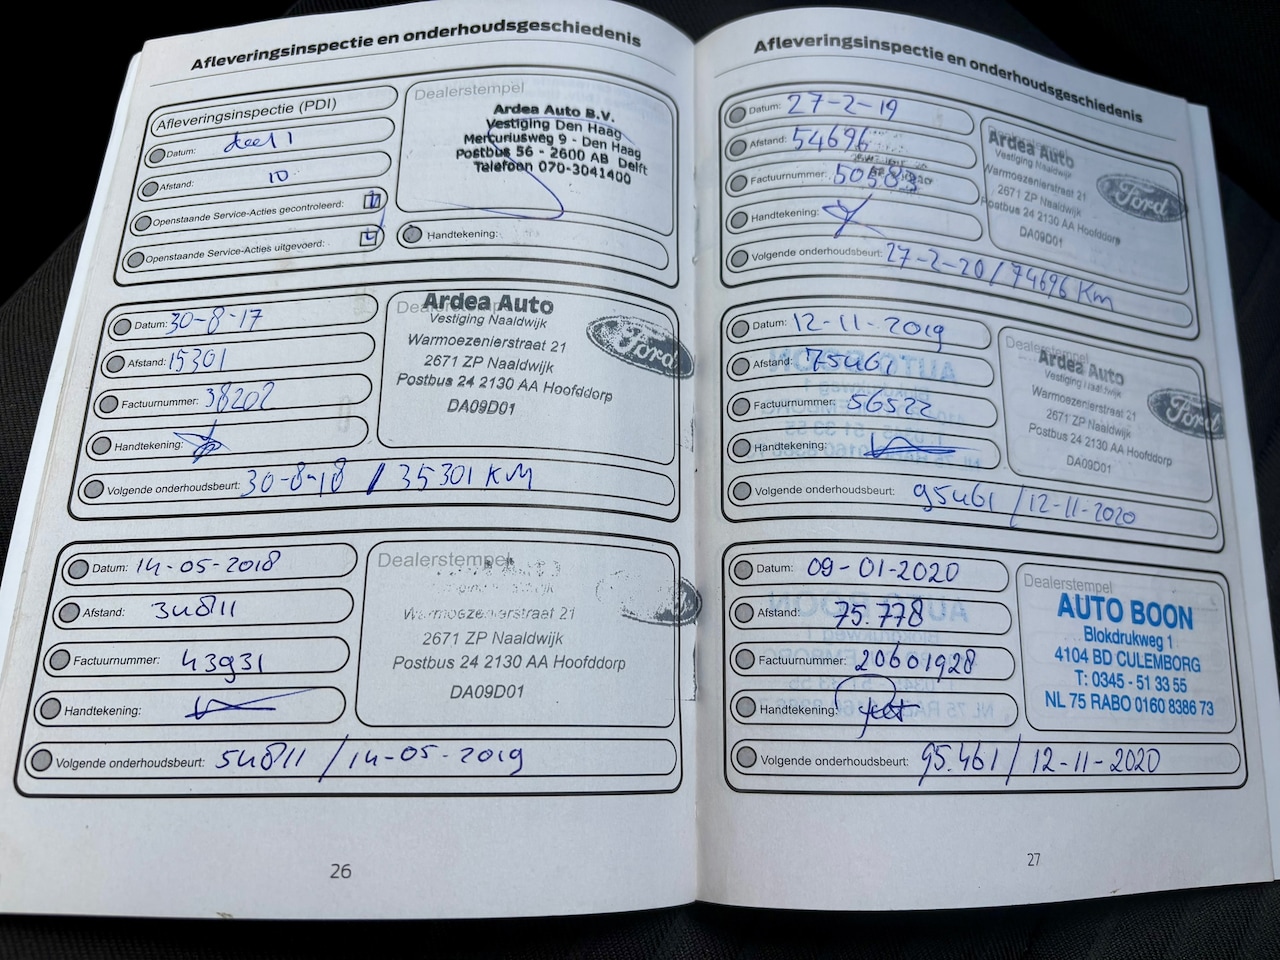 Afleveringsinspectie en onderhoudsgeschiedenis
Afleveringsinspectie (PDI)
Datum: deel 1
Afstand: 10
Openstaande Service-Acties gecontroleerd:
Openstaande Service-Acties uitgevoerd:
Dealerstempel
Ardea Auto B.V.
Vestiging Den Haag
Mercuriusweg 9 - Den Haag
Postbus 56 - 2600 AB Delft
Telefoon 070-3041400
Handtekening:
Datum: 30-8-17
Afstand: 15301
Factuurnummer: 38202
Handtekening:
Volgende onderhoudsbeurt: 30-8-18 / 35301 KM
Dealerstempel
Ardea Auto
Vestiging Naaldwijk
Warmoezenierstraat 21
2671 ZP Naaldwijk
Postbus 24 2130 AA Hoofddorp
DA09D01
Ford
Datum: 14-05-2018
Afstand: 34811
Factuurnummer: 43931
Handtekening:
Volgende onderhoudsbeurt: 54811 / 14-05-2019
Dealerstempel
Warmoezenierstraat 21
2671 ZP Naaldwijk
Postbus 24 2130 AA Hoofddorp
DA09D01
26
Afleveringsinspectie en onderhoudsgeschiedenis
Datum: 27-2-19
Afstand: 54696
Factuurnummer:
Handtekening:
Volgende onderhoudsbeurt: 27-2-20 / 74696 Km
Dealerstempel
Ardea Auto
Vestiging Naaldwijk
Warmoezenierstraat 21
2671 ZP Naaldwijk
Postbus 24 2130 AA Hoofddorp
DA09D01
Ford
Datum: 12-11-2019
Afstand: 75461
Factuurnummer: 56522
Handtekening:
Volgende onderhoudsbeurt: 95461 / 12-11-2020
Dealerstempel
Ardea Auto
Vestiging Naaldwijk
Warmoezenierstraat 21
2671 ZP Naaldwijk
Postbus 24 2130 AA Hoofddorp
DA09D01
Ford
Datum: 09-01-2020
Afstand: 75.778
Factuurnummer: 20601928
Handtekening:
Volgende onderhoudsbeurt: 95.461 / 12-11-2020
Dealerstempel
AUTO BOON
Blokdrukweg 1
4104 BD CULEMBORG
T: 0345 - 51 33 55
NL 75 RABO 0160 8386 73
27